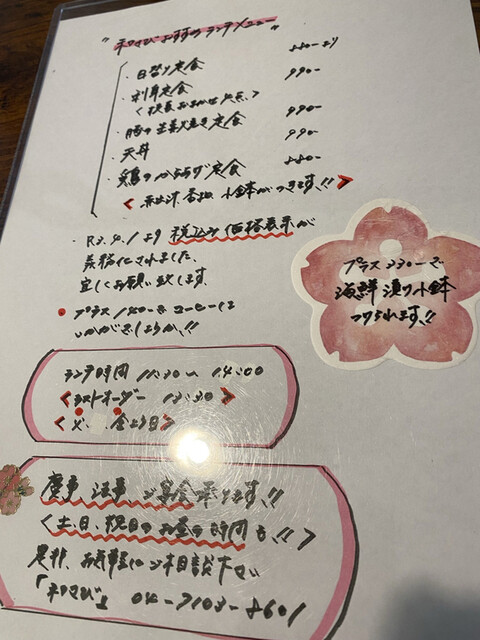 "和わさび おすすめ ランチメニュー"
・日替り定食 880-より
・刺身定食 990-
<板長おまかせ>
・豚の生姜焼き定食 990-
・天丼 990-
・鶏のからあげ定食 880-
<味噌汁、香物、小鉢がつきます!!>
・R3.4.1より税込み価格表示が
義務化されました。
宜しくお願い致します。
プラス330-で
海鮮湧り小鉢
つけられます!!
・プラス 120-で コーヒーは
いかがでしょうか!!
ランチ時間 11:30〜14:00
<ラストオーダー 13:30>
金よう日>
慶事、法事、ご宴会承ります!!
<土、日、祝日のお昼の時間も!!>
是非、お気軽にご相談下さい
「和わさび」 04-7103-8601